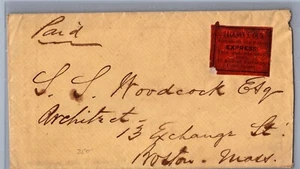 Paid
S. S. Woodcock Esq
Architect -
13 Exchange St.
Boston. Mass.
EXPRESS